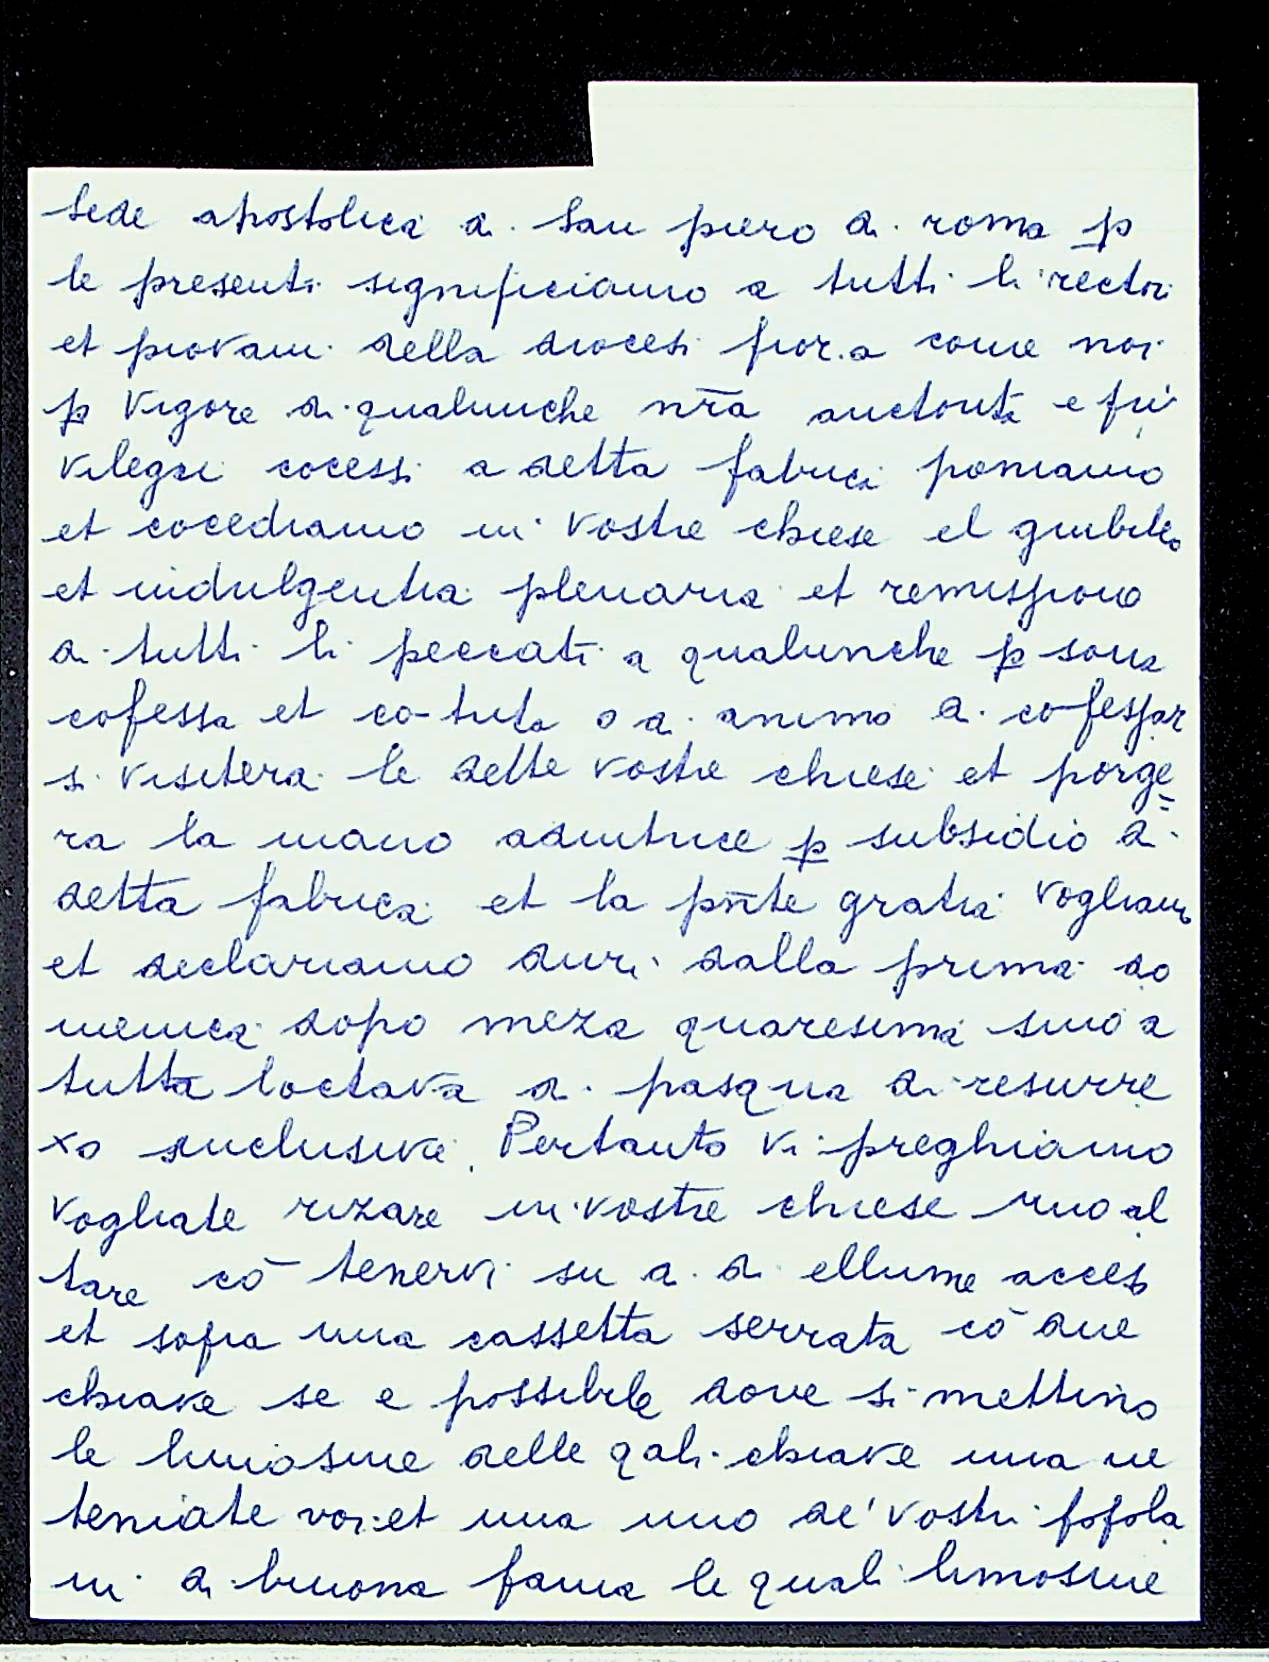 sede apostolica di San piero di roma p
le presenti significiamo a tutti li rectori
et piovani della diocesi fior.a come noi
p vigore di qualunche nr̄a auctorita e pri
vilegii cōcessi a detta fabrica poniamo
et cōcediamo in vostre chiese el giubileo
et indulgentia plenaria et remissione
di tutti li peccati a qualunche p sona
cōfessa et cō-trita o di animo di cōfessar
si visitera le dette vostre chiese et porge
ra la mano adiutrice p subsidio di
detta fabrica et la pn̄te gratia vogliamo
et declariamo duri dalla prima do
menica dopo meza quaresima sino a
tutta loctava di pasqua di resurre
xo inclusive. Pertanto vi preghiamo
vogliate rizare in vostre chiese uno al
tare cō tenervi su di di ellume acceso
et sopra una cassetta serrata cō due
chiave se e possibile dove si mettino
le limosine delle qali chiave una ne
teniate voi et una uno de' vostri popola
ni di buona fama le quali limosine